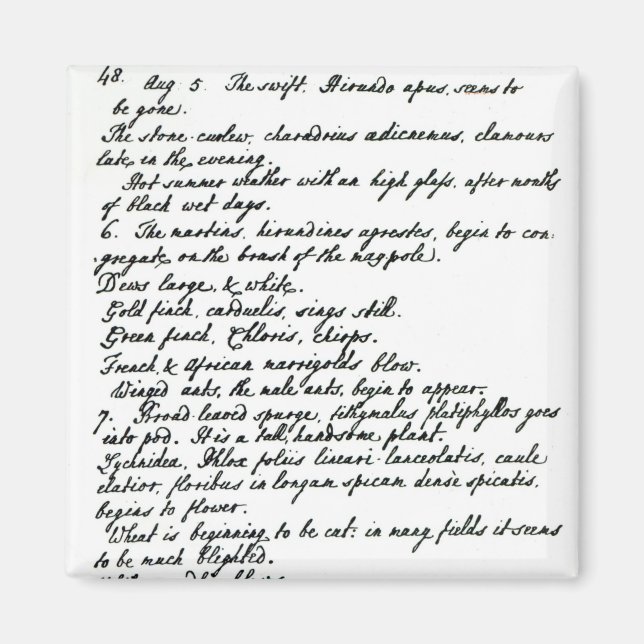 48. Aug: 5. The swift, Hirundo apus, seems to
be gone.
The stone-curlew, charadrius ædicnemus, clamours
late in the evening.
Hot summer weather with an high glaſs, after months
of black wet days.
6. The martins, hirundines agrestes, begin to con-
gregate on the brush of the may-pole.
Dews large, & white.
Gold finch, carduelis, sings still.
Green finch, Chloris, chirps.
French, & African marrigolds blow.
Winged ants, the male ants, begin to appear.
7. Broad-leaved spurge, tithymalus platiphyllos goes
into pod. It is a tall, handsome plant.
Lychnidea, Phlox foliis lineari-lanceolatis, caule
elatior, floribus in longam spicam densè spicatis,
begins to flower.
Wheat is beginning to be cut: in many fields it seems
to be much blighted.